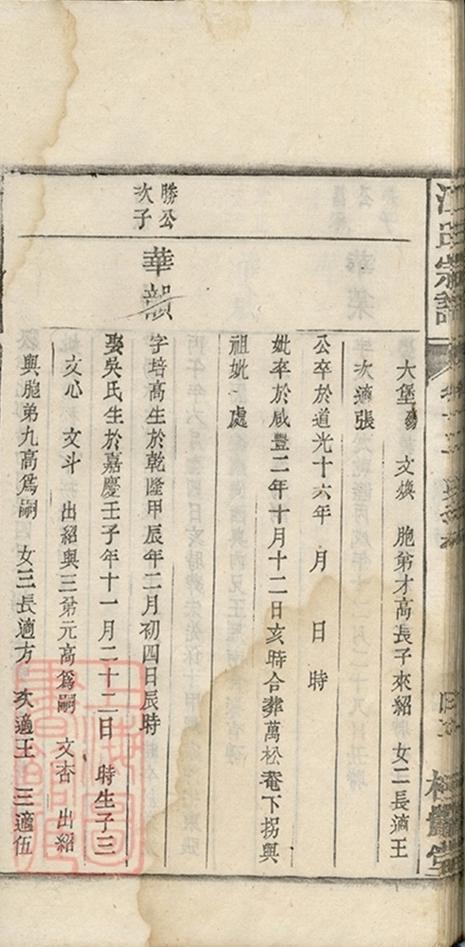 江氏宗譜
大堡 文煥 胞弟才高長子來紹 女二長適王
次適張
公卒於道光十六年 月 日 時
妣卒於咸豐二年十月十二日亥時合葬萬松菴下拐與
祖妣一處
勝公
次子
華韻
字培高生於乾隆甲辰年二月初四日辰時
娶吳氏生於嘉慶壬子年十一月二十二日 時生子三
文心 文斗 出紹與三弟元高爲嗣 文杏 出紹
與胞弟九高爲嗣 女三長適方 次適王 三適伍